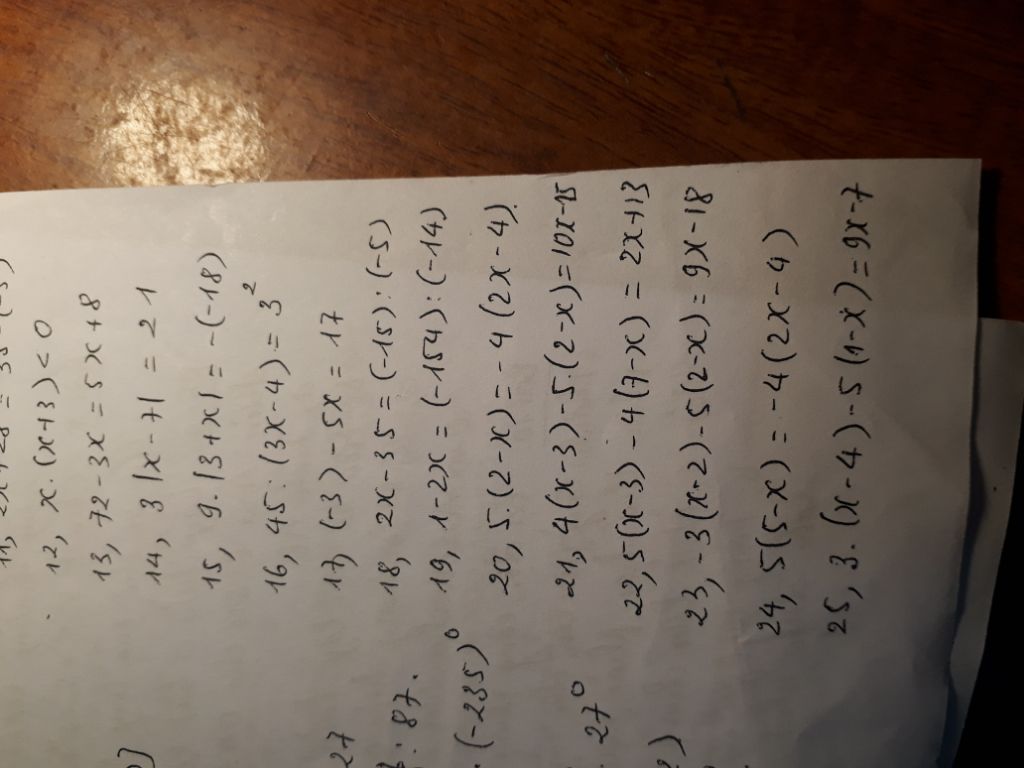 12, x. (x+3) < 0
13, 72-3x = 5x+8
14, 3|x-7| = 21
15, 9.|3+x| = -(-18)
16, 45:(3x-4) = 3²
17, (-3) - 5x = 17
18, 2x-35 = (-15):(-5)
19, 1-2x = (-154):(-14)
20, 5.(2-x) = -4(2x-4)
21, 4(x-3)-5(2-x)=10x-15
22, 5(x-3)-4(7-x) = 2x+13
23, -3(x-2)-5(2-x)= 9x-18
24, 5(5-x) = -4(2x-4)
25, 3.(x-4)-5(1-x)=9x-7
27
: 87.
. (-235)⁰
. 27⁰